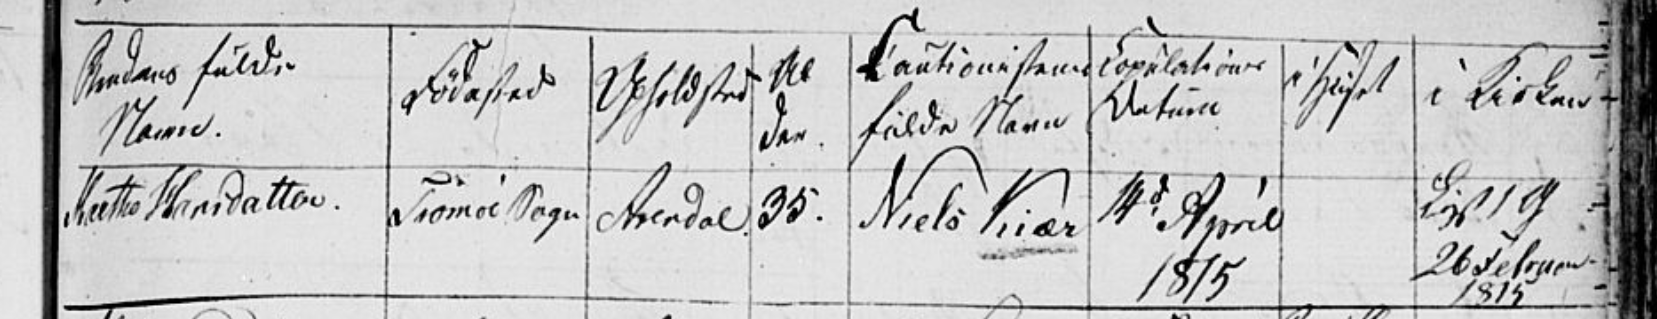 Brudens fulde
Navn.
Födested
Opholdsted
Al
der.
Cautionistens
fulde Navn
Copulations
Datum
i Huset
i Kirken
Hansdatter.
Tromöe Sogn
Arendal.
35.
Niels Kiær
14d April
1815
Lyst 1 G
26 Februar
1815